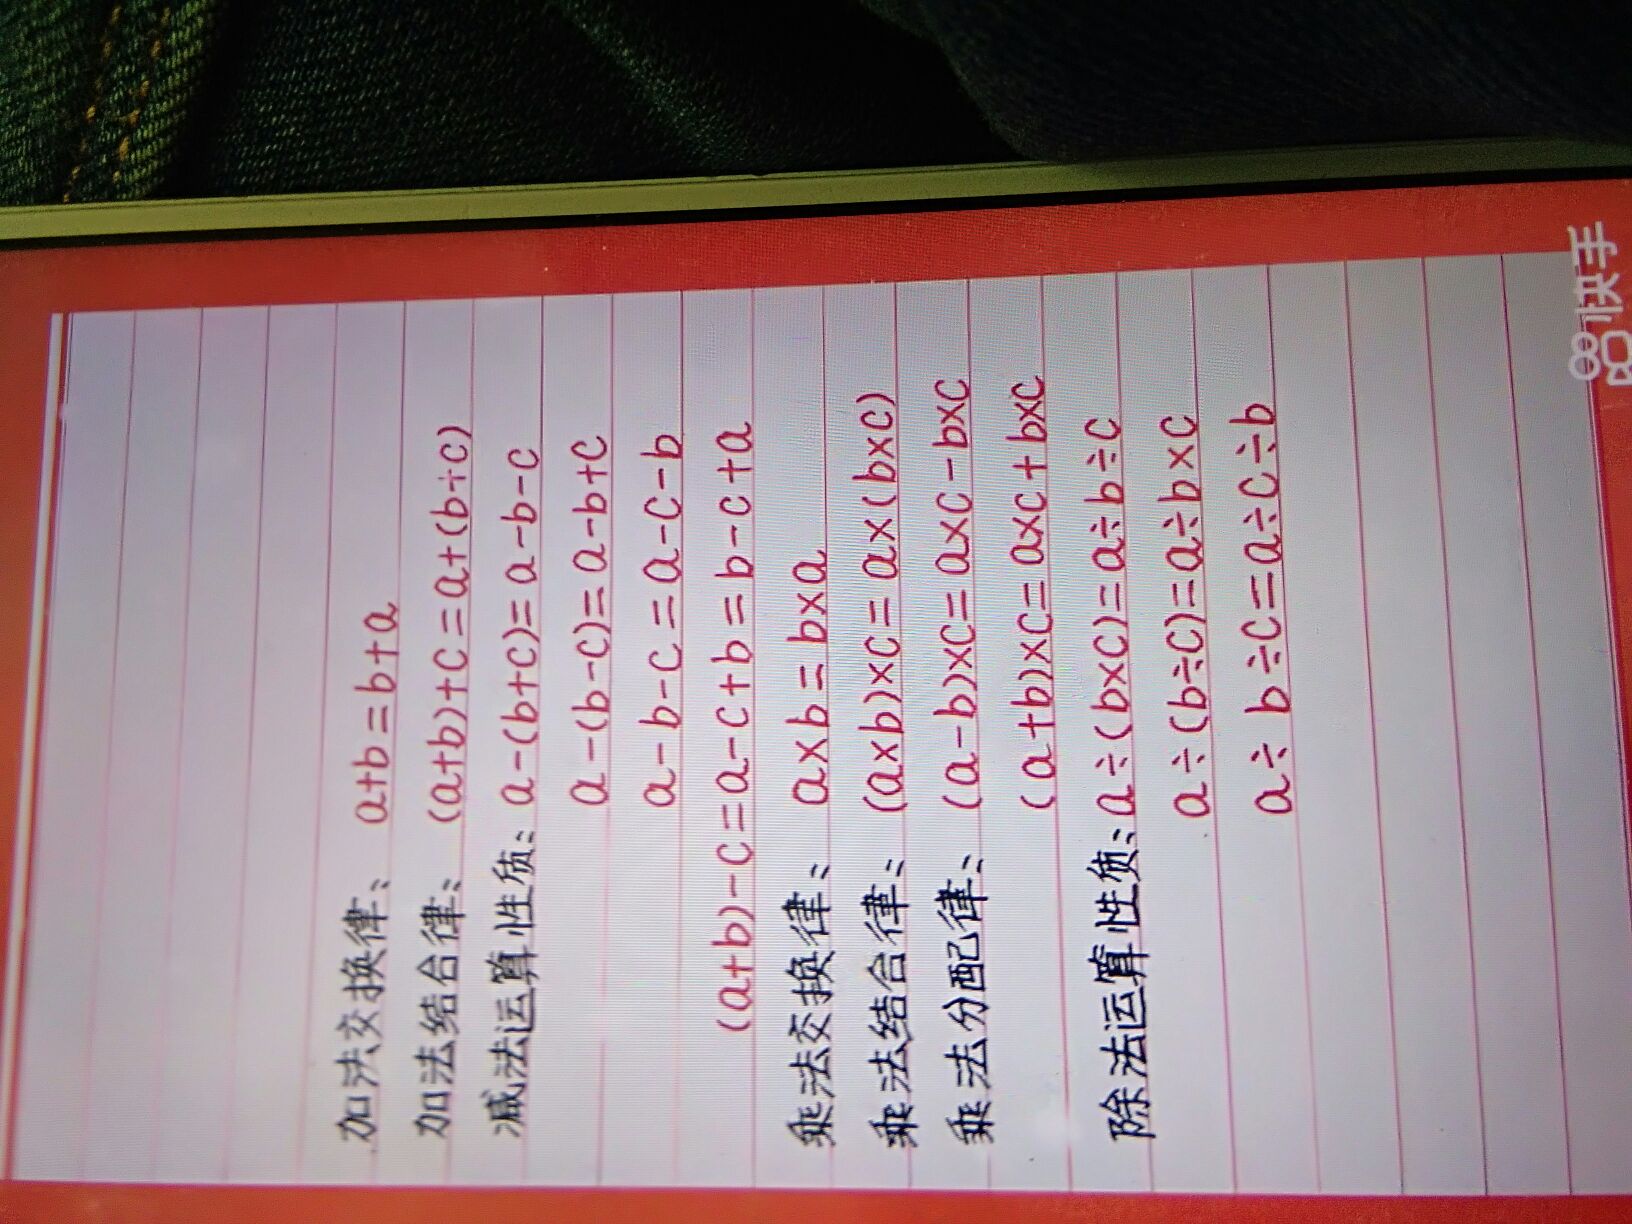 加法交换律: a+b=b+a
加法结合律: (a+b)+c=a+(b+c)
减法运算性质: a-(b+c)=a-b-c
a-(b-c)=a-b+c
a-b-c=a-c-b
(a+b)-c=a-c+b=b-c+a
乘法交换律: a×b=b×a
乘法结合律: (a×b)×c=a×(b×c)
乘法分配律: (a-b)×c=a×c-b×c
(a+b)×c=a×c+b×c
除法运算性质: a÷(b×c)=a÷b÷c
a÷(b÷c)=a÷b×c
a÷b÷c=a÷c÷b
快手